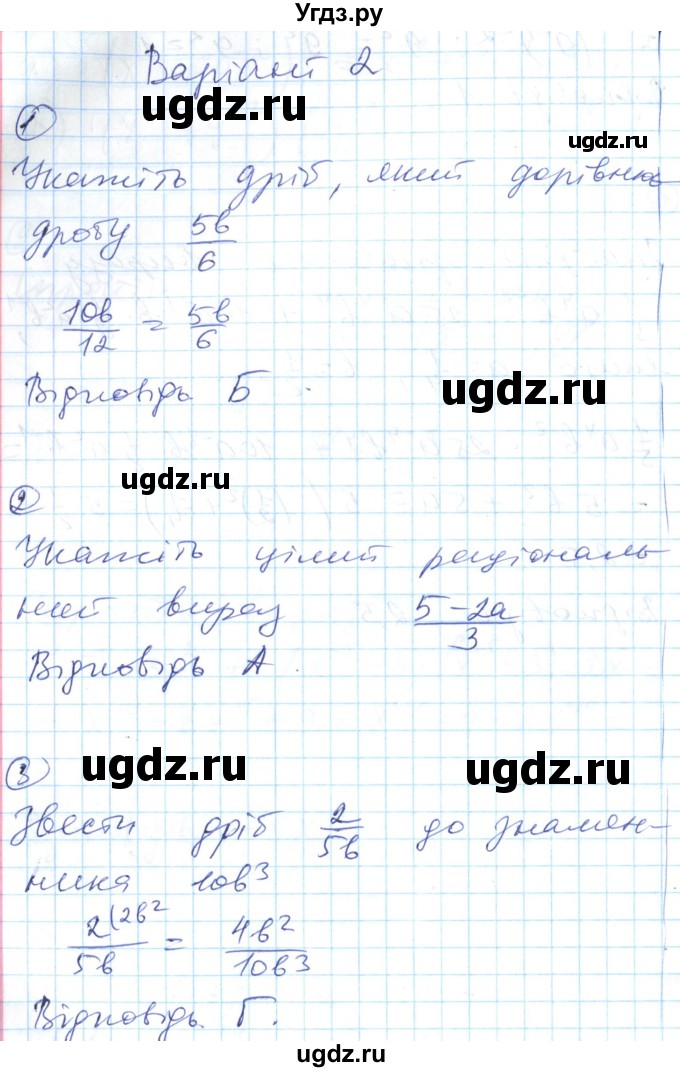 Угдз.ру
Варіант 2
ugdz.ru
1
ugdz.ru
Укажіть дріб, який дорівнює
дробу 5b/6
10b/12 = 5b/6
Відповідь Б.
ugdz.ru
ugdz.ru
2
Укажіть цілий раціональ
ний вираз (5-2a)/3
Відповідь А.
3
ugdz.ru
ugdz.ru
Звести дріб 2/5b до знамен-
ника 10b³
2(2b²/5b = 4b²/10b³
Відповідь Г.
ugdz.ru